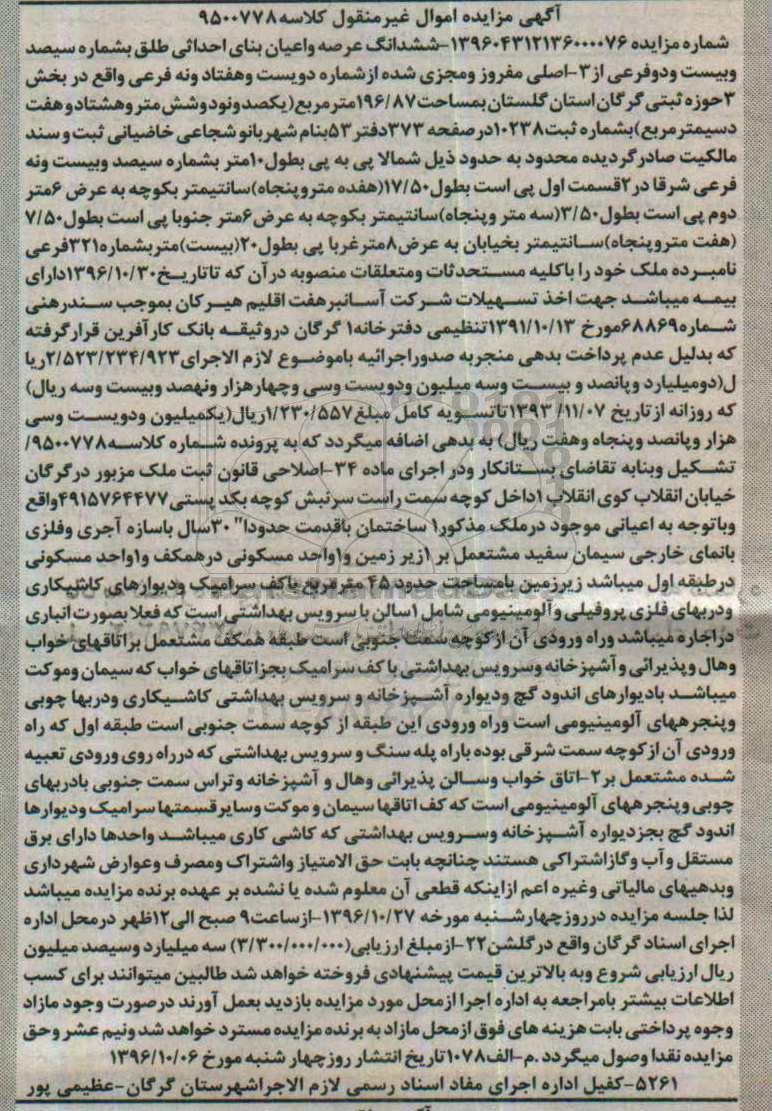 آگهی مزایده اموال غیرمنقول کلاسه ۹۵۰۰۷۷۸
شماره مزایده ۱۳۹۶۰۴۳۱۲۱۳۶۰۰۰۰۷۶-ششدانگ عرصه واعیان بنای احداثی طلق بشماره سیصد
وبیست ودوفرعی از۳-اصلی مفروز ومجزی شده ازشماره دویست وهفتاد ونه فرعی واقع در بخش
۳حوزه ثبتی گرگان استان گلستان بمساحت ۱۹۶/۸۷مترمربع(یکصدونودوشش متر وهشتادوهفت
دسیمترمربع)بشماره ثبت۱۰۲۳۸درصفحه ۳۷۳دفتر ۵۳بنام شهربانو شجاعی خاضیانی ثبت و سند
مالکیت صادرگردیده محدود به حدود ذیل شمالا پی به پی بطول۱۰متر بشماره سیصد وبیست ونه
فرعی شرقا در۲قسمت اول پی است بطول۱۷/۵۰(هفده متروپنجاه)سانتیمتر بکوچه به عرض ۶متر
دوم پی است بطول۳/۵۰(سه متر وپنجاه)سانتیمتر بکوچه به عرض۶متر جنوبا پی است بطول۷/۵۰
(هفت متروپنجاه)سانتیمتر بخیابان به عرض۸مترغربا پی بطول۲۰(بیست)متربشماره۳۲۱فرعی
نامبرده ملک خود را باکلیه مستحدثات ومتعلقات منصوبه درآن که تاتاریخ۱۳۹۶/۱۰/۳۰دارای
بیمه میباشد جهت اخذ تسهیلات شرکت آسانبرهفت اقلیم هیرکان بموجب سندرهنی
شماره۶۸۸۶۹مورخ ۱۳۹۱/۱۰/۱۳تنظیمی دفترخانه۱ گرگان دروثیقه بانک کارآفرین قرارگرفته
که بدلیل عدم پرداخت بدهی منجربه صدوراجرائیه باموضوع لازم الاجرای۲/۵۲۳/۲۳۴/۹۲۳ریا
ل(دومیلیارد وپانصد و بیست وسه میلیون ودویست وسی وچهارهزار ونهصد وبیست وسه ریال)
که روزانه ازتاریخ ۱۳۹۳/۱۱/۰۷تاتسویه کامل مبلغ ۱/۲۳۰/۵۵۷ریال(یکمیلیون ودویست وسی
هزار وپانصد وپنجاه وهفت ریال) به بدهی اضافه میگردد که به پرونده شماره کلاسه۹۵۰۰۷۷۸/
تشکیل وبنابه تقاضای بستانکار ودر اجرای ماده ۳۴-اصلاحی قانون ثبت ملک مزبور درگرگان
خیابان انقلاب کوی انقلاب ۱داخل کوچه سمت راست سرنبش کوچه بکد پستی۴۹۱۵۷۶۴۴۷۷واقع
وباتوجه به اعیانی موجود درملک مذکور۱ ساختمان باقدمت حدودا" ۳۰سال باسازه آجری وفلزی
بانمای خارجی سیمان سفید مشتعمل بر ۱زیر زمین و۱واحد مسکونی درهمکف و۱واحد مسکونی
درطبقه اول میباشد زیرزمین بامساحت حدود ۴۵ مترمربع باکف سرامیک ودیوارهای کاشیکاری
ودربهای فلزی پروفیلی وآلومینیومی شامل ۱سالن با سرویس بهداشتی است که فعلا بصورت انباری
دراجاره میباشد وراه ورودی آن ازکوچه سمت جنوبی است طبقه همکف مشتعمل براتاقهای خواب
وهال وپذیرائی وآشپزخانه وسرویس بهداشتی با کف سرامیک بجزاتاقهای خواب که سیمان وموکت
میباشد بادیوارهای اندود گچ ودیواره آشپزخانه و سرویس بهداشتی کاشیکاری ودربها چوبی
وپنجرههای آلومینیومی است وراه ورودی این طبقه از کوچه سمت جنوبی است طبقه اول که راه
ورودی آن ازکوچه سمت شرقی بوده باراه پله سنگ و سرویس بهداشتی که درراه روی ورودی تعبیه
شده مشتعمل بر۲-اتاق خواب وسالن پذیرائی وهال و آشپزخانه وتراس سمت جنوبی بادربهای
چوبی وپنجرههای آلومینیومی است که کف اتاقها سیمان و موکت وسایرقسمتها سرامیک ودیوارها
اندود گچ بجزدیواره آشپزخانه وسرویس بهداشتی که کاشی کاری میباشد واحدها دارای برق
مستقل وآب وگازاشتراکی هستند چنانچه بابت حق الامتیاز واشتراک ومصرف وعوارض شهرداری
وبدهیهای مالیاتی وغیره اعم ازاینکه قطعی آن معلوم شده یا نشده بر عهده برنده مزایده میباشد
لذا جلسه مزایده درروزچهارشنبه مورخه ۱۳۹۶/۱۰/۲۷-ازساعت۹ صبح الی۱۲ظهر درمحل اداره
اجرای اسناد گرگان واقع درگلشن۲۲-ازمبلغ ارزیابی(۳/۳۰۰/۰۰۰/۰۰۰) سه میلیارد وسیصد میلیون
ریال ارزیابی شروع وبه بالاترین قیمت پیشنهادی فروخته خواهد شد طالبین میتوانند برای کسب
اطلاعات بیشتر بامراجعه به اداره اجرا ازمحل مورد مزایده بازدید بعمل آورند درصورت وجود مازاد
وجوه پرداختی بابت هزینه های فوق ازمحل مازاد به برنده مزایده مسترد خواهد شد ونیم عشر وحق
مزایده نقدا وصول میگردد.م-الف۱۰۷۸تاریخ انتشار روزچهار شنبه مورخ ۱۳۹۶/۱۰/۰۶
۵۲۶۱-کفیل اداره اجرای مفاد اسناد رسمی لازم الاجراشهرستان گرگان-عظیمی پور